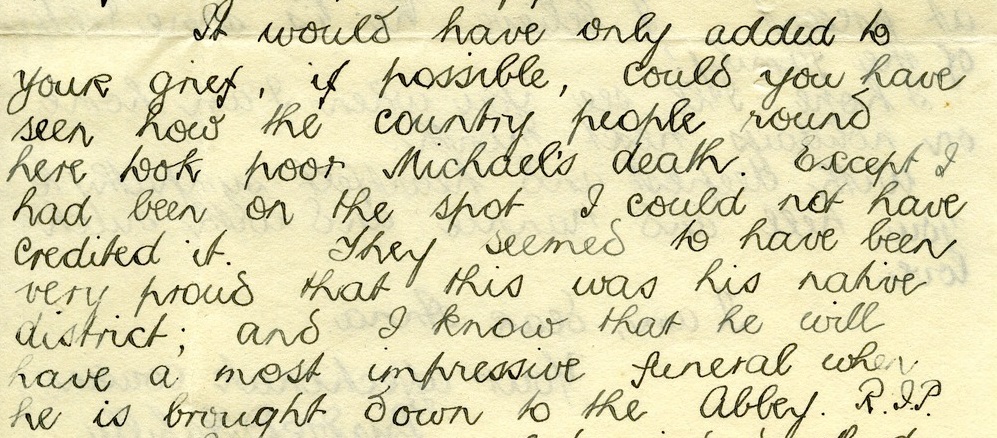 It would have only added to
your grief, if possible, could you have
seen how the country people round
here took poor Michael's death. Except I
had been on the spot I could not have
credited it. They seemed to have been
very proud that this was his native
district; and I know that he will
have a most impressive funeral when
he is brought down to the Abbey. R.I.P.